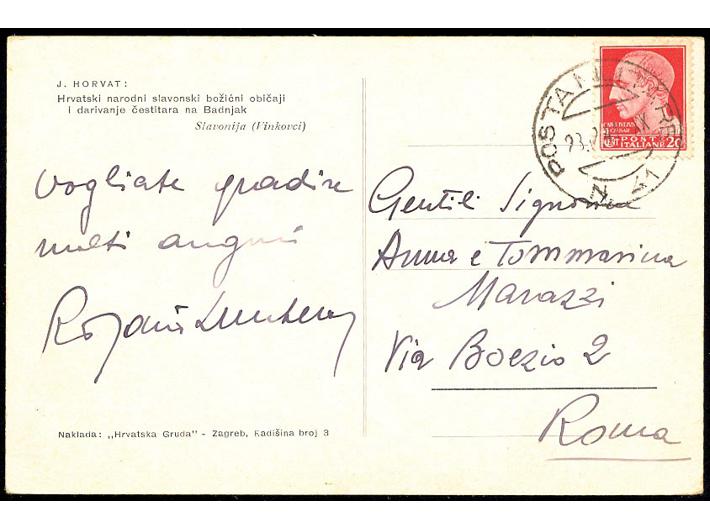 J. HORVAT:
Hrvatski narodni slavonski božićni običaji
i darivanje čestitara na Badnjak
Slavonija (Vinkovci)
Vogliate gradire
molti auguri
Naklada: „Hrvatska Gruda" - Zagreb, Radišina broj 3
POSTA MILITARE
N. 41
23.
POSTE
ITALIANE 20
Gentili Signorine
Anna e Tommasina
Marazzi
Via Boezio 2
Roma